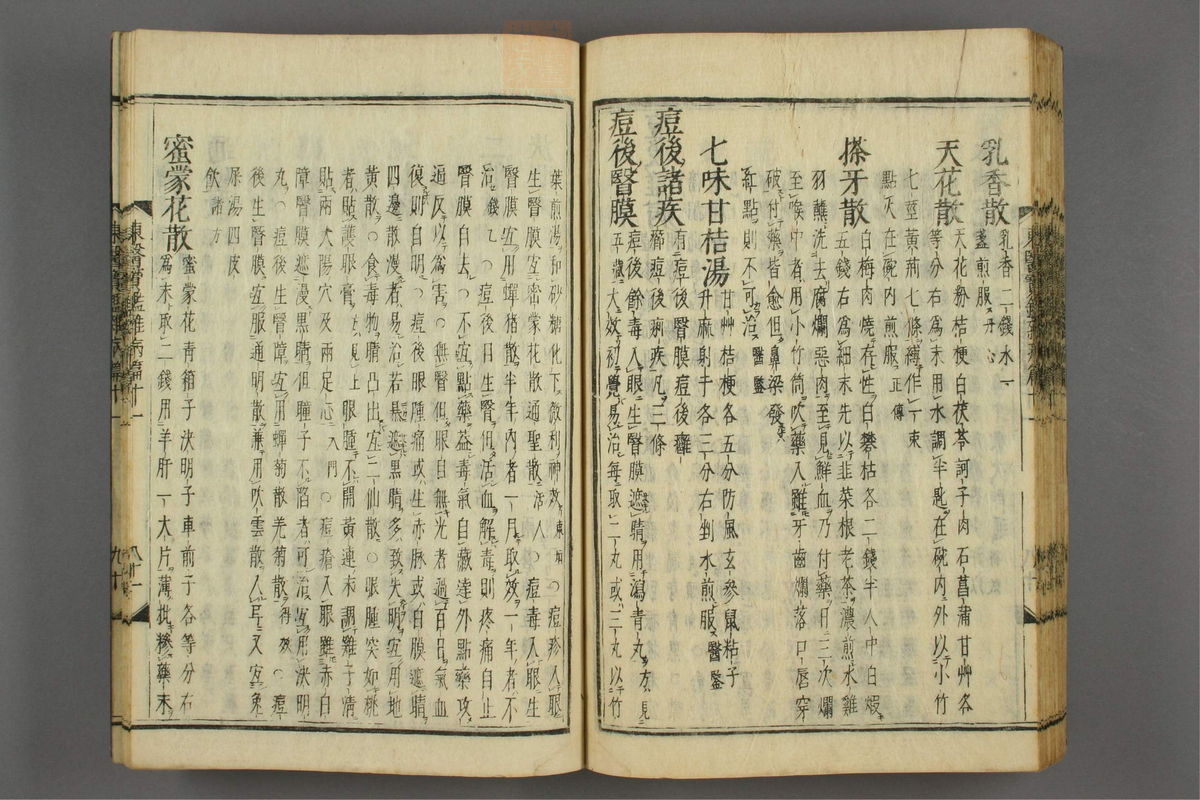 乳香散 乳香二錢水一
盞煎服
天花散 天花粉桔梗白茯苓訶子肉石菖蒲甘艸各
等分右爲末用水調半匙在碗內外以小竹
七莖黃荊七條縛作一束
點火在碗內煎服 正傳
搽牙散 白梅肉燒存性白礬枯各二錢半人中白煅
五錢右爲細末先以韭菜根老茶濃煎水雞
羽蘸洗去腐爛惡肉至見鮮血乃付藥日三次爛
至喉中者用小竹筒吹藥入雖牙齒爛落口唇穿
破付藥皆愈但鼻梁發
紅點則不可治 醫鑒
七味甘桔湯 甘艸桔梗各五分防風玄參鼠粘子
升麻射干各三分右剉水煎服 醫鑒
痘後諸疾 有痘後瞖膜痘後癰
癤痘後痢疾凡三條
痘後瞖膜 痘後餘毒入眼生瞖膜遮睛用瀉青丸方見
五藏大妙初覺易治每取二丸或三丸以竹
葉煎湯和砂糖化下微利神效 東垣 ○痘疹入眼
生瞖膜宜密蒙花散通聖散 活人 ○痘毒入眼生
瞖膜宜用蟬猪散半年內者一月取效一年者不
治 錢乙 ○痘後目生瞖但活血解毒則疼痛自止
瞖膜自去○不宜點藥益毒氣自藏達外點藥攻
通反以爲害○但眼自無光者過百日氣血
復則自明○痘後眼腫痛或生赤脉或白膜遮睛
四邊散漫者易治若暴遮黑睛多致失明宜用地
黃散○食毒物睛凸出宜二仙散○眼腫突如桃
者貼護眼膏 方見上 眼腫不開黃連末調雞子淸
貼兩太陽穴及兩足心 入門 ○痘瘡入眼雖赤白
障瞖膜遮漫黑睛但瞳子不陷者可治宜用決明
丸○痘後生瞖障宜用蟬菊散羌菊散 得效 ○痘
後生瞖膜宜服通明散兼用吹雲散入耳又宜兔
屎湯四皮
飮諸方
密蒙花散 蜜蒙花青箱子決明子車前子各等分右
爲末取二錢用羊肝一大片薄批摻藥末